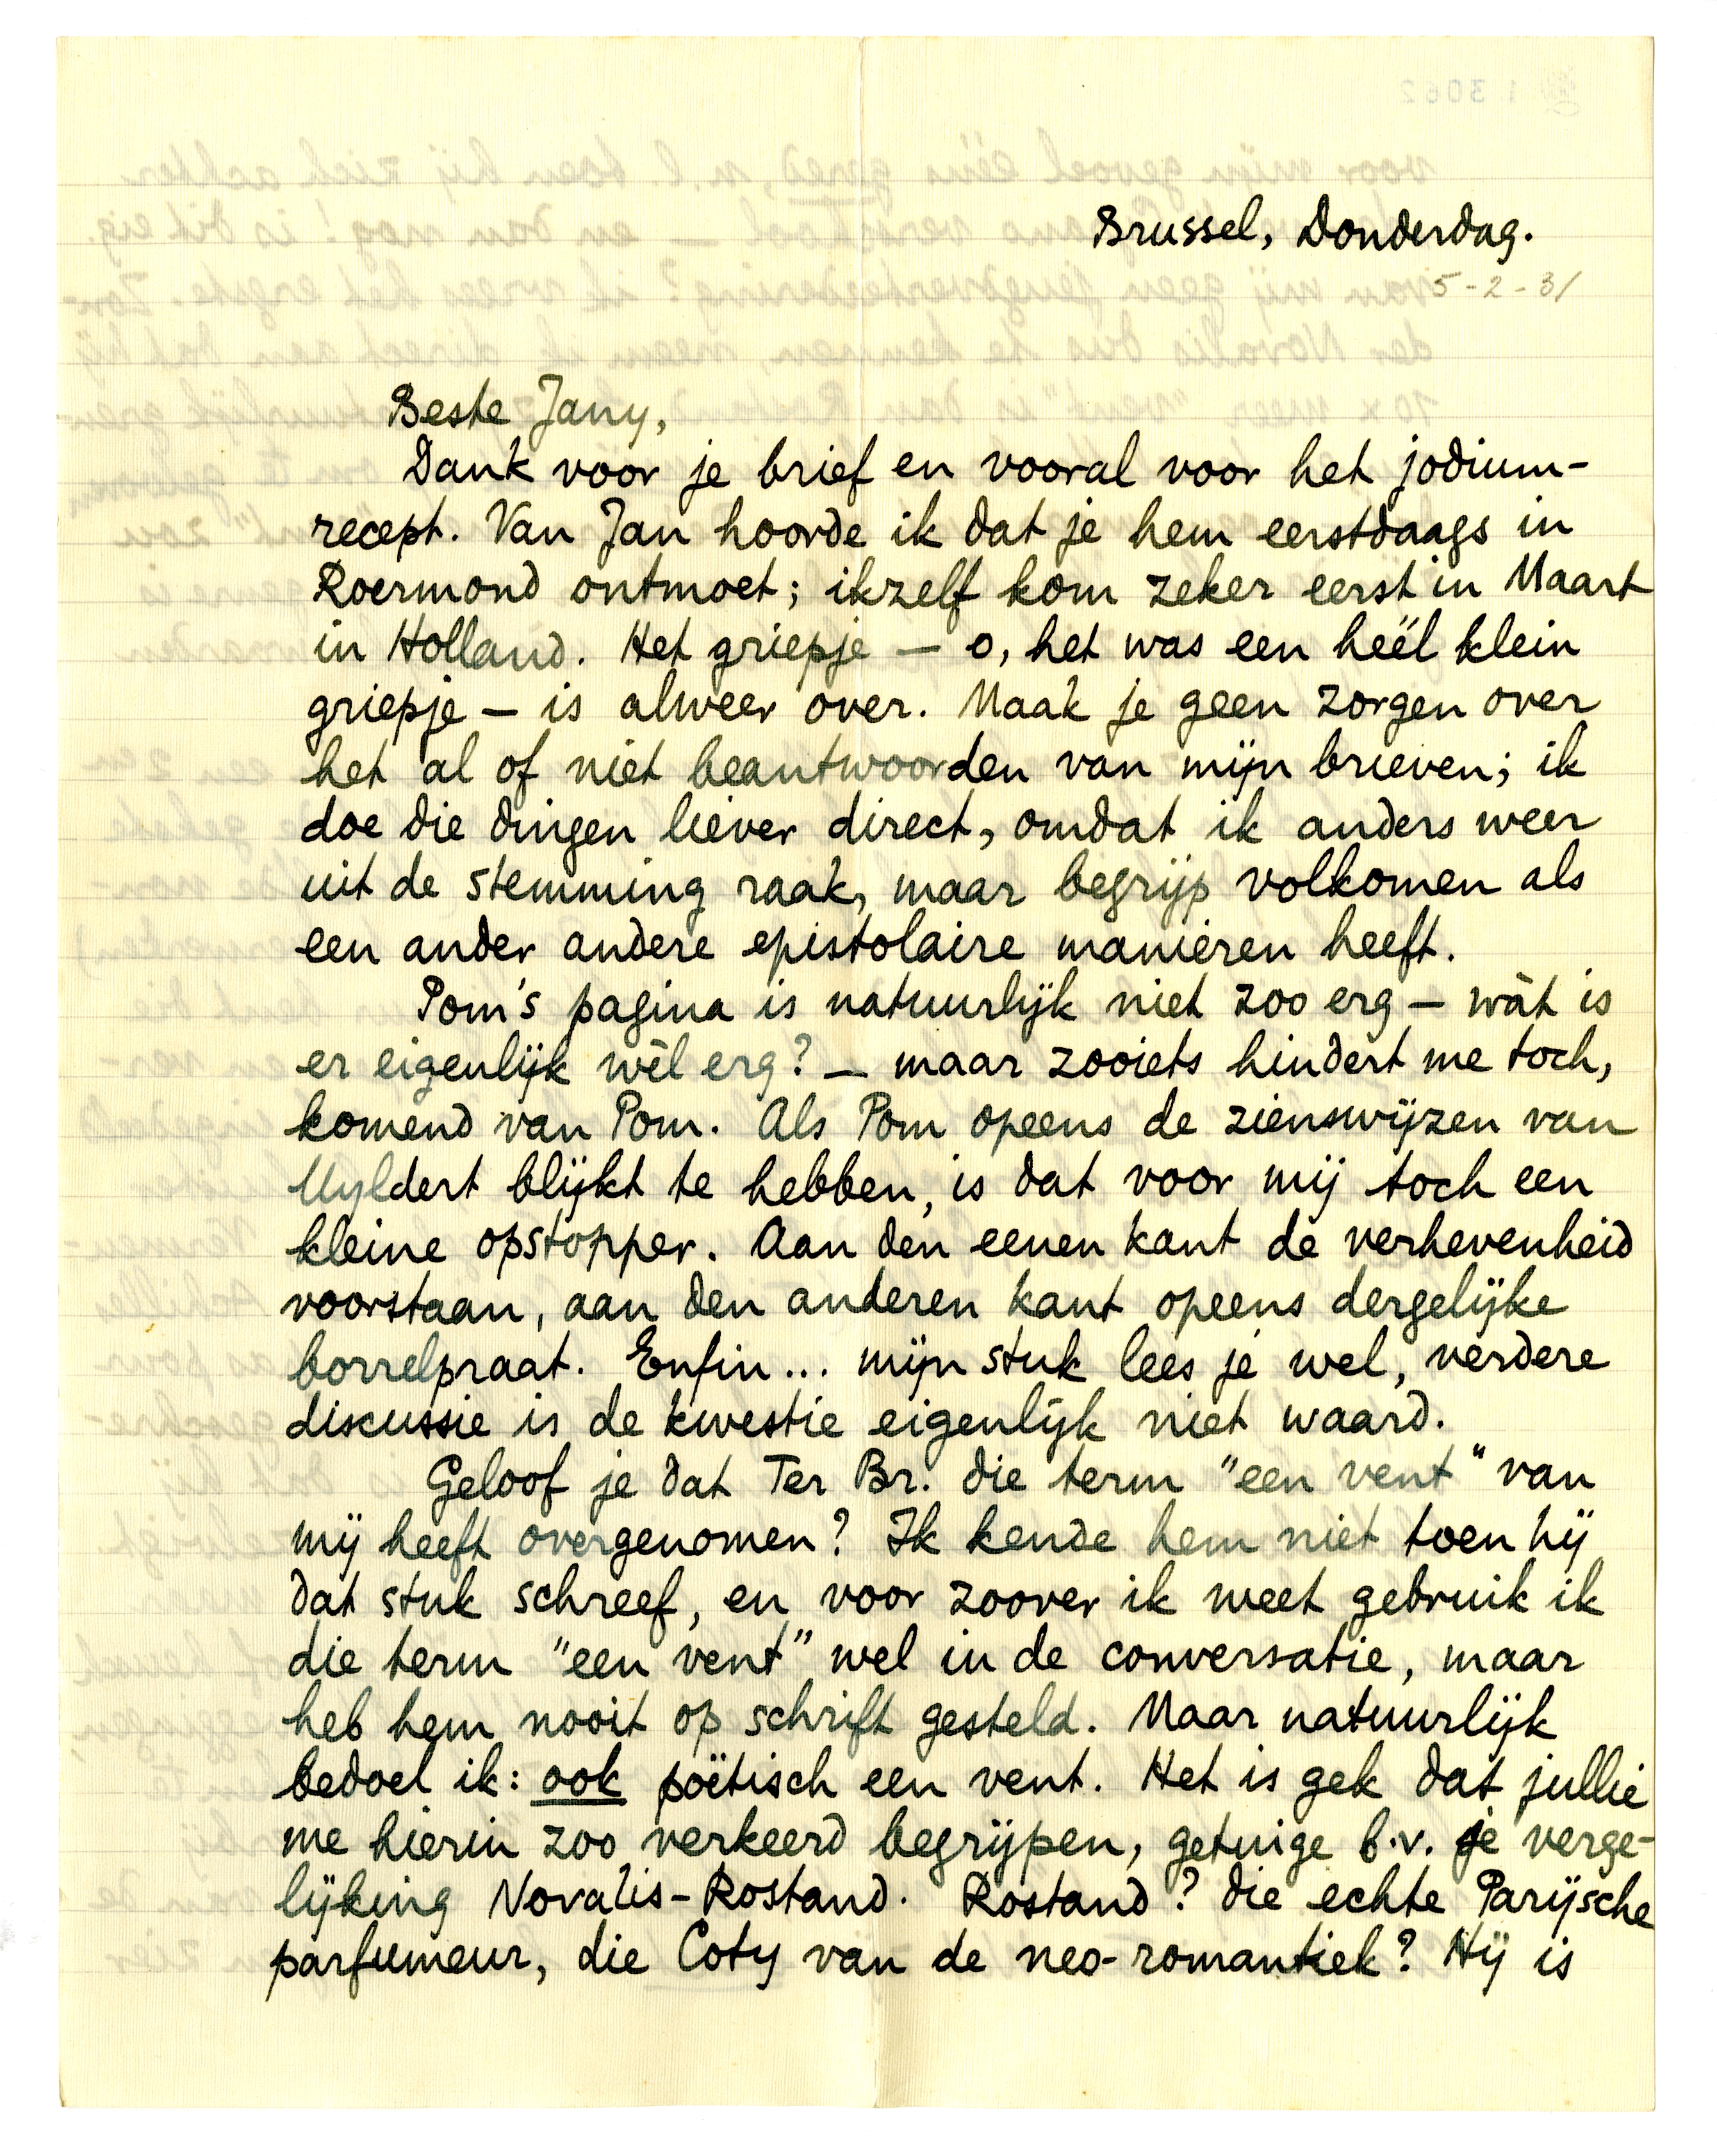 Brussel, Donderdag.
5-2-31
Beste Jany,
Dank voor je brief en vooral voor het jodium-
recept. Van Jan hoorde ik dat je hem eerstdaags in
Roermond ontmoet; ikzelf kom zeker eerst in Maart
in Holland. Het griepje — o, het was een heél klein
griepje — is alweer over. Maak je geen zorgen over
het al of niet beantwoorden van mijn brieven; ik
doe die dingen liever direct, omdat ik anders weer
uit de stemming raak, maar begrijp volkomen als
een ander andere epistolaire manieren heeft.
Pom's pagina is natuurlijk niet zoo erg — wàt is
er eigenlijk wèl erg? — maar zooiets hindert me toch,
komend van Pom. Als Pom opeens de zienswijzen van
Uyldert blijkt te hebben, is dat voor mij toch een
kleine opstopper. Aan den eenen kant de verhevenheid
voorstaan, aan den anderen kant opeens dergelijke
borrelpraat. Enfin... mijn stuk lees je wel, verdere
discussie is de kwestie eigenlijk niet waard.
Geloof je dat Ter Br. die term "een vent" van
mij heeft overgenomen? Ik kende hem niet toen hij
dat stuk schreef, en voor zoover ik weet gebruik ik
die term "een vent" wel in de conversatie, maar
heb hem nooit op schrift gesteld. Maar natuurlijk
bedoel ik: ook poëtisch een vent. Het is gek dat jullie
me hierin zoo verkeerd begrijpen, getuige b.v. je verge-
lijking Novalis-Rostand. Rostand? die echte Parijsche
parfumeur, die Coty van de neo-romantiek? Hij is